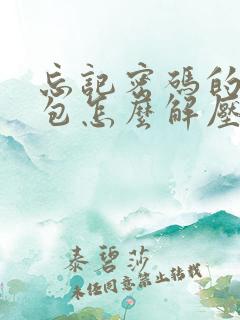 忘記密碼的
包怎麼解壓
泰碧莎
未經同意禁止轉載